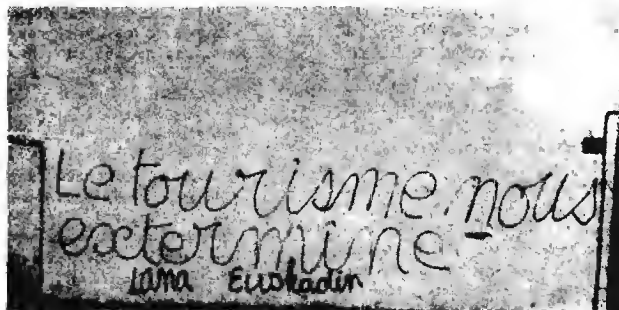 Le tourisme nous
extermine
lana Euskadin